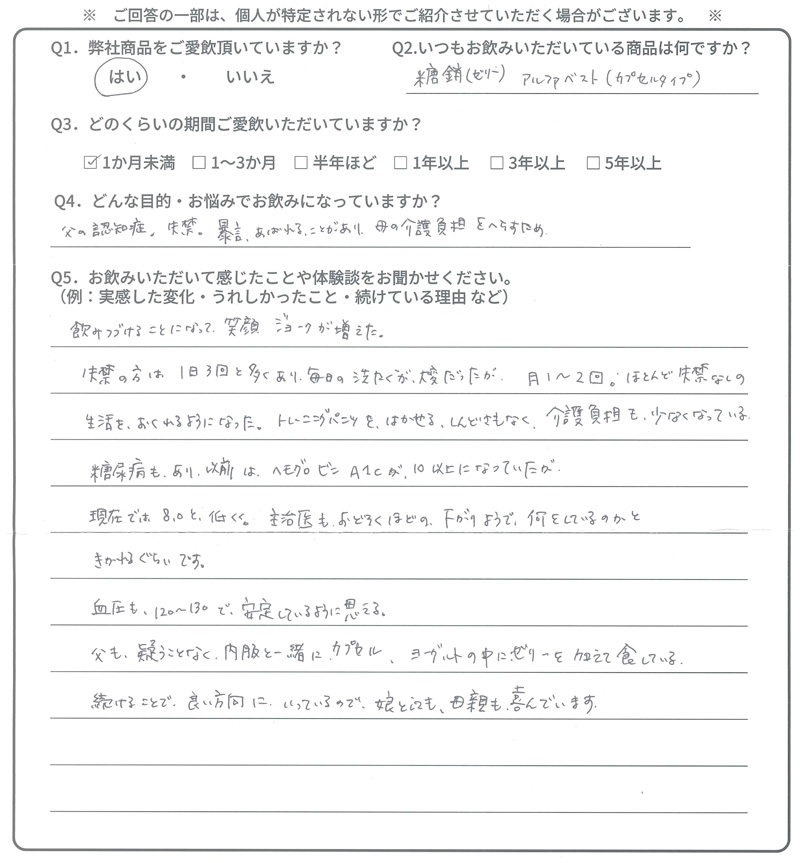 ※ ご回答の一部は、個人が特定されない形でご紹介させていただく場合がございます。 ※
Q1．弊社商品をご愛飲頂いていますか？
はい ・ いいえ
Q2.いつもお飲みいただいている商品は何ですか？
糖鎖(ゼリー) アルファベスト(カプセルタイプ)
Q3．どのくらいの期間ご愛飲いただいていますか？
☑1か月未満 □1～3か月 □半年ほど □1年以上 □3年以上 □5年以上
Q4．どんな目的・お悩みでお飲みになっていますか？
父の認知症、失禁。暴言、あばれることがあり、母の介護負担をへらすため
Q5．お飲みいただいて感じたことや体験談をお聞かせください。
（例：実感した変化・うれしかったこと・続けている理由 など）
飲みつづけることになって、笑顔 ジョークが増えた。
失禁の方は、1日3回と多くあり、毎日の洗たくが、大変だったが、月1～2回。ほとんど失禁なしの
生活を、おくれるようになった。トレーニングパンツを、はかせる、しんどさもなく、介護負担も、少なくなっている。
糖尿病も、あり、以前は、ヘモグロビンA1cが、10以上になっていたが、
現在では8.0と、低くく。主治医も、おどろくほどの、下がりようで、何をしているのかと
きかれるぐらいです。
血圧も、120～130で、安定しているように思える。
父も、疑うことなく、内服と一緒に、カプセル、ヨーグルトの中にゼリーを加えて食している。
続けることで、良い方向に、いっているので、娘としても、母親も、喜んでいます。